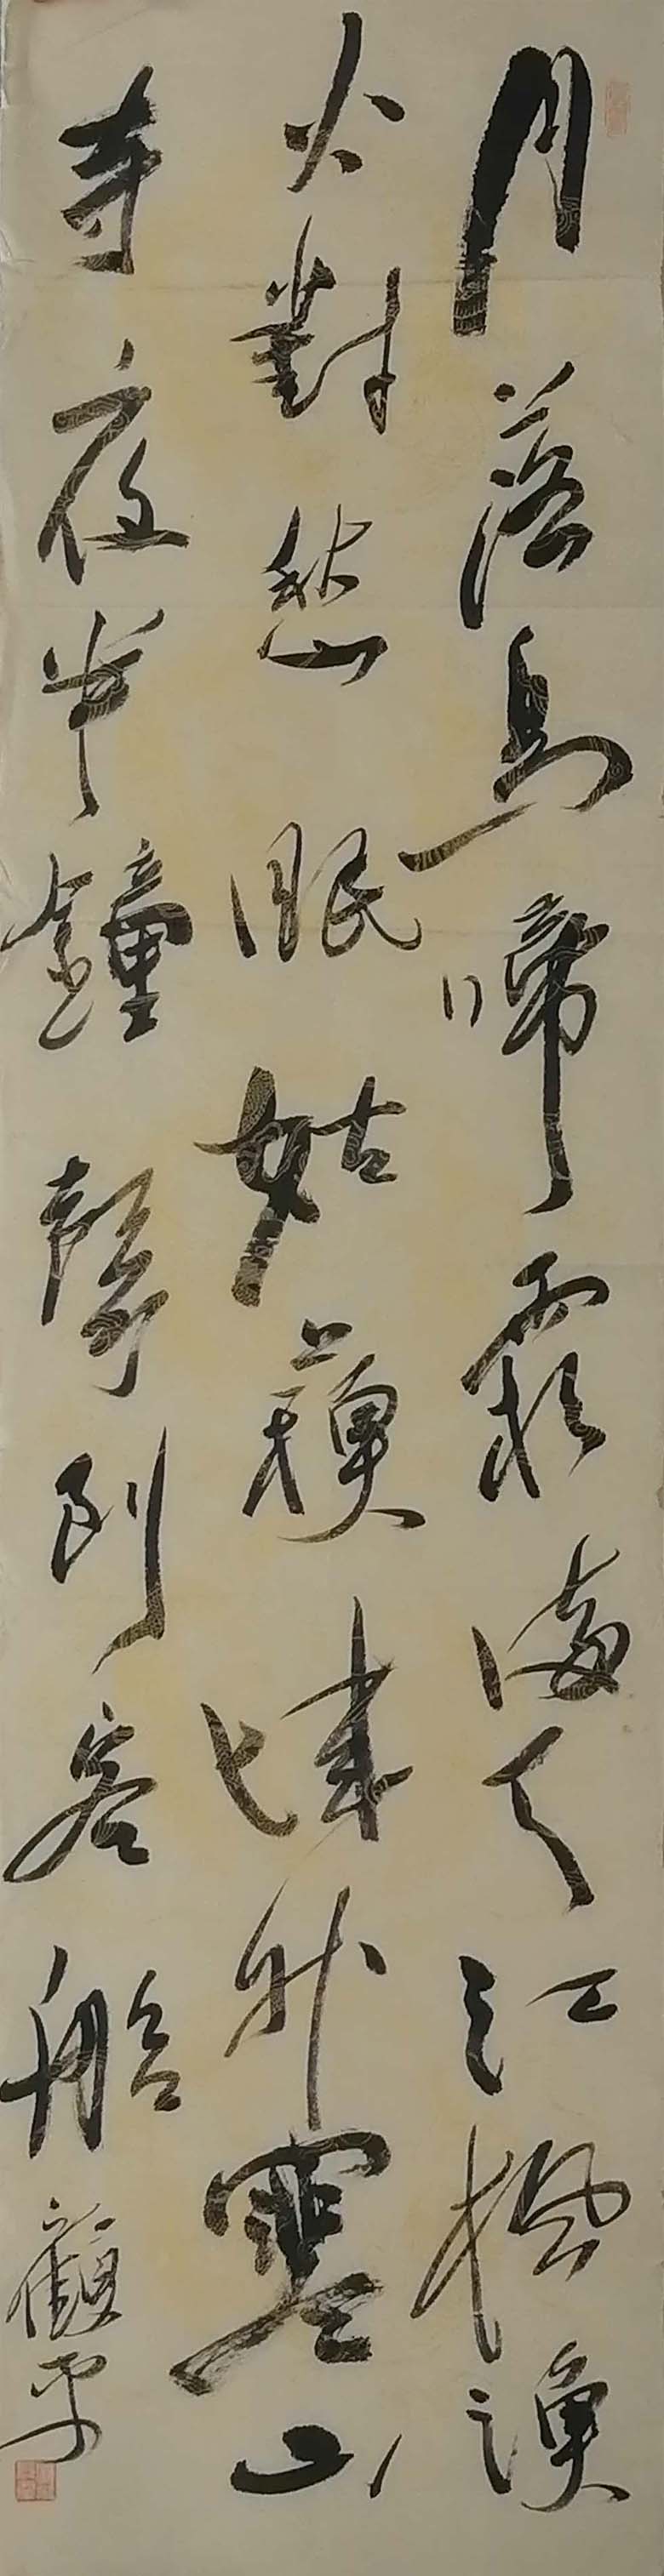 月落烏啼霜滿天江楓漁
火對愁眠姑蘇城外寒山
寺夜半鐘聲到客船顧平